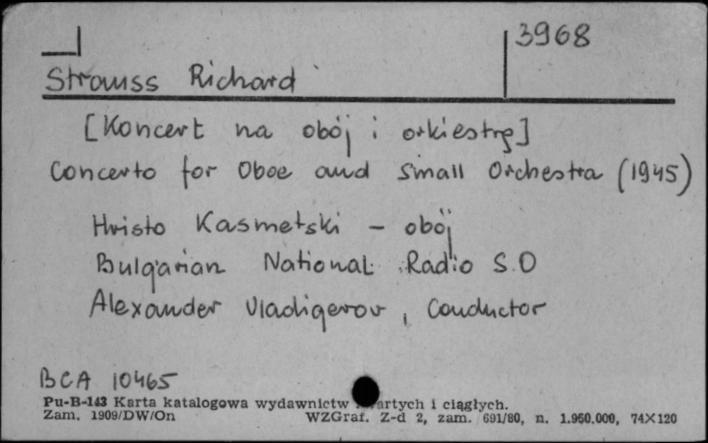 3968
Strauss Richard
[Koncert na obój i orkiestrę]
Concerto for Oboe and Small Orchestra (1945)
Hristo Kasmetski - obój
Bulgarian National Radio S.O
Alexander Vladigerov, Conductor
BCA 10465
Pu-B-143 Karta katalogowa wydawnictw i ciągłych.
Zam. 1909/DW/On WZGraf. Z-d 2, zam. 691/80, n. 1.950.000, 74X120